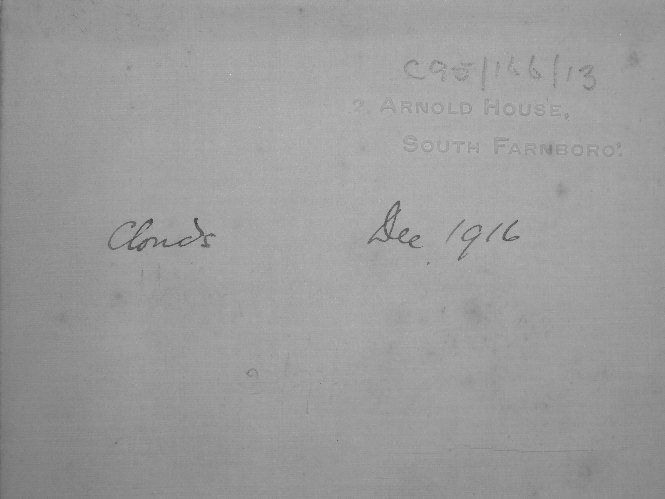 C95/166/13
2, ARNOLD HOUSE,
SOUTH FARNBORO'.
Clouds Dec 1916